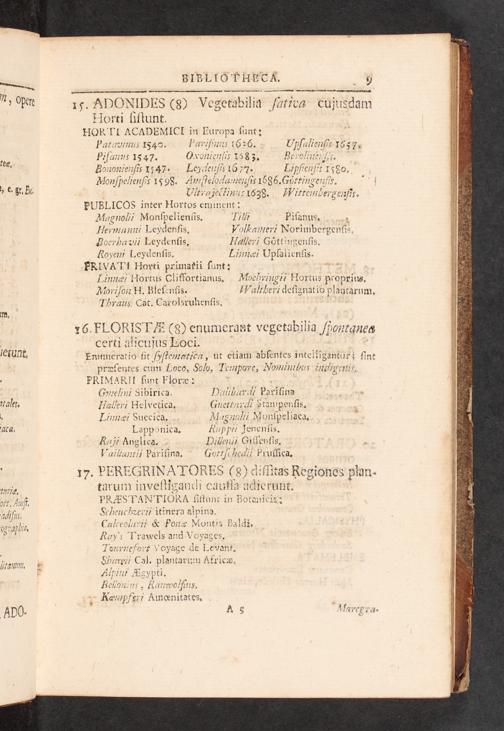 BIBLIOTHECA. 9
15. ADONIDES (8) Vegetabilia ſativa cujusdam
Horti ſiſtunt.
HORTI ACADEMICI in Europa ſunt:
Patavinus 1540. Pariſinus 1626. Upſalienſis 1657.
Piſanus 1547. Oxonienſis 1683. Berolinenſis.
Bononienſis 1547. Leydenſis 1677. Lipſienſis 1580.
Monſpelienſis 1598. Amſtelodamenſis 1686. Göttingenſis.
Ultrajectinus 1638. Wittembergenſis.
PUBLICOS inter Hortos eminent:
Magnolii Monſpelienſis. Tilli Piſanus.
Hermanni Leydenſis. Volkameri Norimbergenſis.
Boerhavii Leydenſis. Halleri Göttingenſis.
Royeni Leydenſis. Linnæi Upſalienſis.
PRIVATI Horti primarii ſunt:
Linnæi Hortus Cliffortianus. Moehringii Hortus proprius.
Moriſon H. Bleſenſis. Waltheri deſignatio plantarum.
Thraus. Cat. Carolsruhenſis.
16. FLORISTÆ (8) enumerant vegetabilia ſpontanea
certi alicujus Loci.
Enumeratio ſit ſyſtematica, ut etiam abſentes intelligantur; ſint
præſentes cum Loco, Solo, Tempore, Nominibus indigenis.
PRIMARII ſunt Floræ:
Gmelini Sibirica. Dalibardi Pariſina
Halleri Helvetica. Guettardi Stampenſis.
Linnæi Suecica. Magnolii Monſpeliaca.
Lapponica. Ruppii Jenenſis.
Raji Anglica. Dillenii Giſſenſis.
Vaillantii Pariſina. Gottſchedii Pruſſica.
17. PEREGRINATORES (8) diſſitas Regiones plan-
tarum inveſtigandi cauſſa adierunt.
PRÆSTANTIORA ſiſtunt in Botanicis:
Scheuchzerii itinera alpina.
Calceolarii & Ponæ Montis Baldi.
Ray's Trawels and Voyages.
Tournefort Voyage de Levant.
Shawii Cal. plantarum Africæ.
Alpini Ægypti.
Bellonius, Rauwolfius.
Kæmpferi Amœnitates.
A 5 Marcgra-
m, opere
ierunt.
ADO-